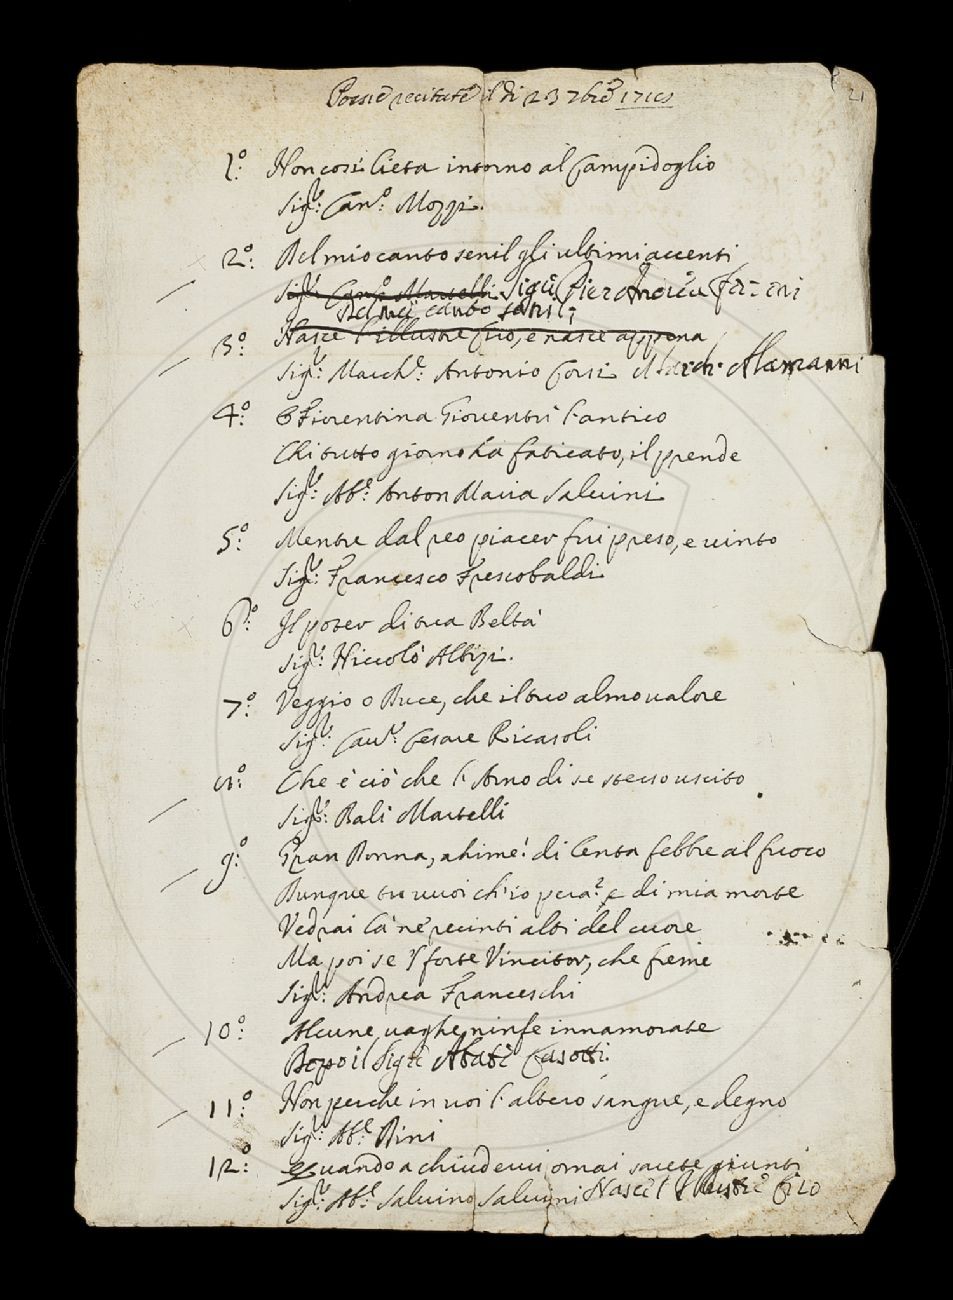 Poesie recitate il dì 23 7bre 1710
21
1o: Non così lieta intorno al Campidoglio
Sigr: Cano: Mozzi.
2o: Del mio canto senil gli ultimi accenti
Sigr: Cano: Martelli Sigr: Pier Andrea
Del mio canto senil
3o: Nasce l'illustre Ciro, e nasce appena
Sigr: March: Antonio Corsi March: Alamanni
4o: O Fiorentina Gioventù l'antico
Chi tutto giorno ha faticato, il prende
Sigr: Abe: Anton Maria Salvini
5o: Mentre dal reo piacer fui preso, e vinto
Sigr: Francesco Frescobaldi
6o: Il poter di tua Beltà
Sigr: Niccolò Albizi.
7o: Veggio o Duce, che il tuo almo valore
Sigr: Cavr: Cesare Ricasoli
8o: Che è ciò che l'Arno di se stesso uscito
Sigr: Balì Martelli
9o: Gran Donna, ahimè! di lenta febbre al fuoco
Dunque tu vuoi ch'io pera? e di mia morte
Vedrai là ne' recinti alti del cuore
Ma poi se 'l forte Vincitor, che freme
Sigr: Andrea Franceschi
10o: Alcune vaghe ninfe innamorate
Dopo il Sigr: Abate Casotti
11o: Non perche in voi l'altero sangue, e degno
Sigr: Abe: Dini
12o: Quando a chiudervi omai sarete giunti
Sigr: Abe: Salvino Salvini Nasce l'Illustre Ciro